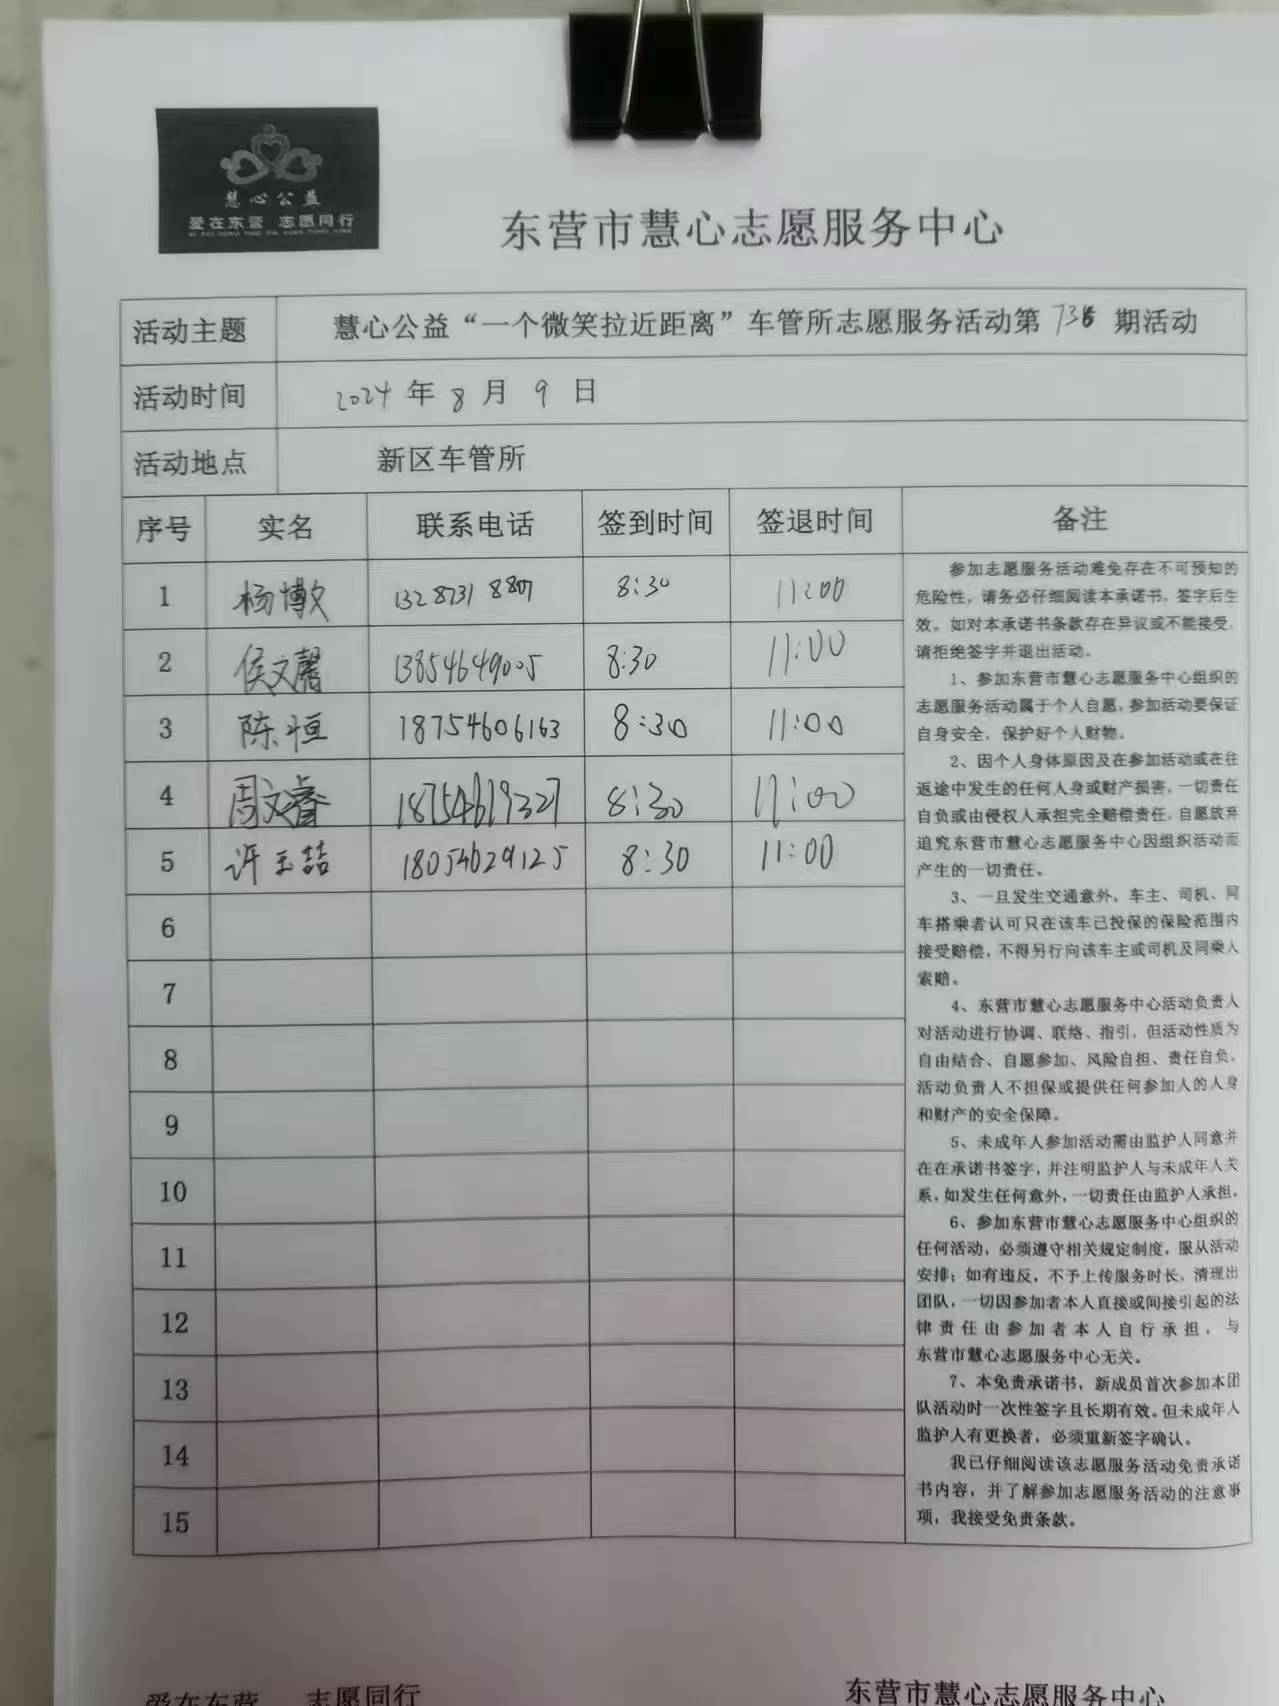 慧心公益
爱在东营 志愿同行
东营市慧心志愿服务中心
活动主题 慧心公益“一个微笑拉近距离”车管所志愿服务活动第 736 期活动
活动时间 2024 年 8 月 9 日
活动地点 新区车管所
序号 实名 联系电话 签到时间 签退时间 备注
1 杨博文 13287318807 8:30 11:00
2 侯文馨 13854649005 8:30 11:00
3 陈恒 18754606163 8:30 11:00
4 周文睿 18754679327 8:30 11:00
5 许玉喆 18054629125 8:30 11:00
6
7
8
9
10
11
12
13
14
15
参加志愿服务活动难免存在不可预知的
危险性，请务必仔细阅读本承诺书，签字后生
效。如对本承诺书条款存在异议或不能接受，
请拒绝签字并退出活动。
1、参加东营市慧心志愿服务中心组织的
志愿服务活动属于个人自愿，参加活动要保证
自身安全，保护好个人财物。
2、因个人身体原因及在参加活动或在往
返途中发生的任何人身或财产损害，一切责任
自负或由侵权人承担完全赔偿责任，自愿放弃
追究东营市慧心志愿服务中心因组织活动而
产生的一切责任。
3、一旦发生交通意外，车主、司机、同
车搭乘者认可只在该车已投保的保险范围内
接受赔偿，不得另行向该车主或司机及同乘人
索赔。
4、东营市慧心志愿服务中心活动负责人
对活动进行协调、联络、指引，但活动性质为
自由结合、自愿参加、风险自担、责任自负，
活动负责人不担保或提供任何参加人的人身
和财产的安全保障。
5、未成年人参加活动需由监护人同意并
在在承诺书签字，并注明监护人与未成年人关
系，如发生任何意外，一切责任由监护人承担。
6、参加东营市慧心志愿服务中心组织的
任何活动，必须遵守相关规定制度，服从活动
安排；如有违反，不予上传服务时长，清理出
团队，一切因参加者本人直接或间接引起的法
律责任由参加者本人自行承担，与
东营市慧心志愿服务中心无关。
7、本免责承诺书，新成员首次参加本团
队活动时一次性签字且长期有效。但未成年人
监护人有更换者，必须重新签字确认。
我已仔细阅读该志愿服务活动免责承诺
书内容，并了解参加志愿服务活动的注意事
项，我接受免责条款。
爱在东营 志愿同行 东营市慧心志愿服务中心